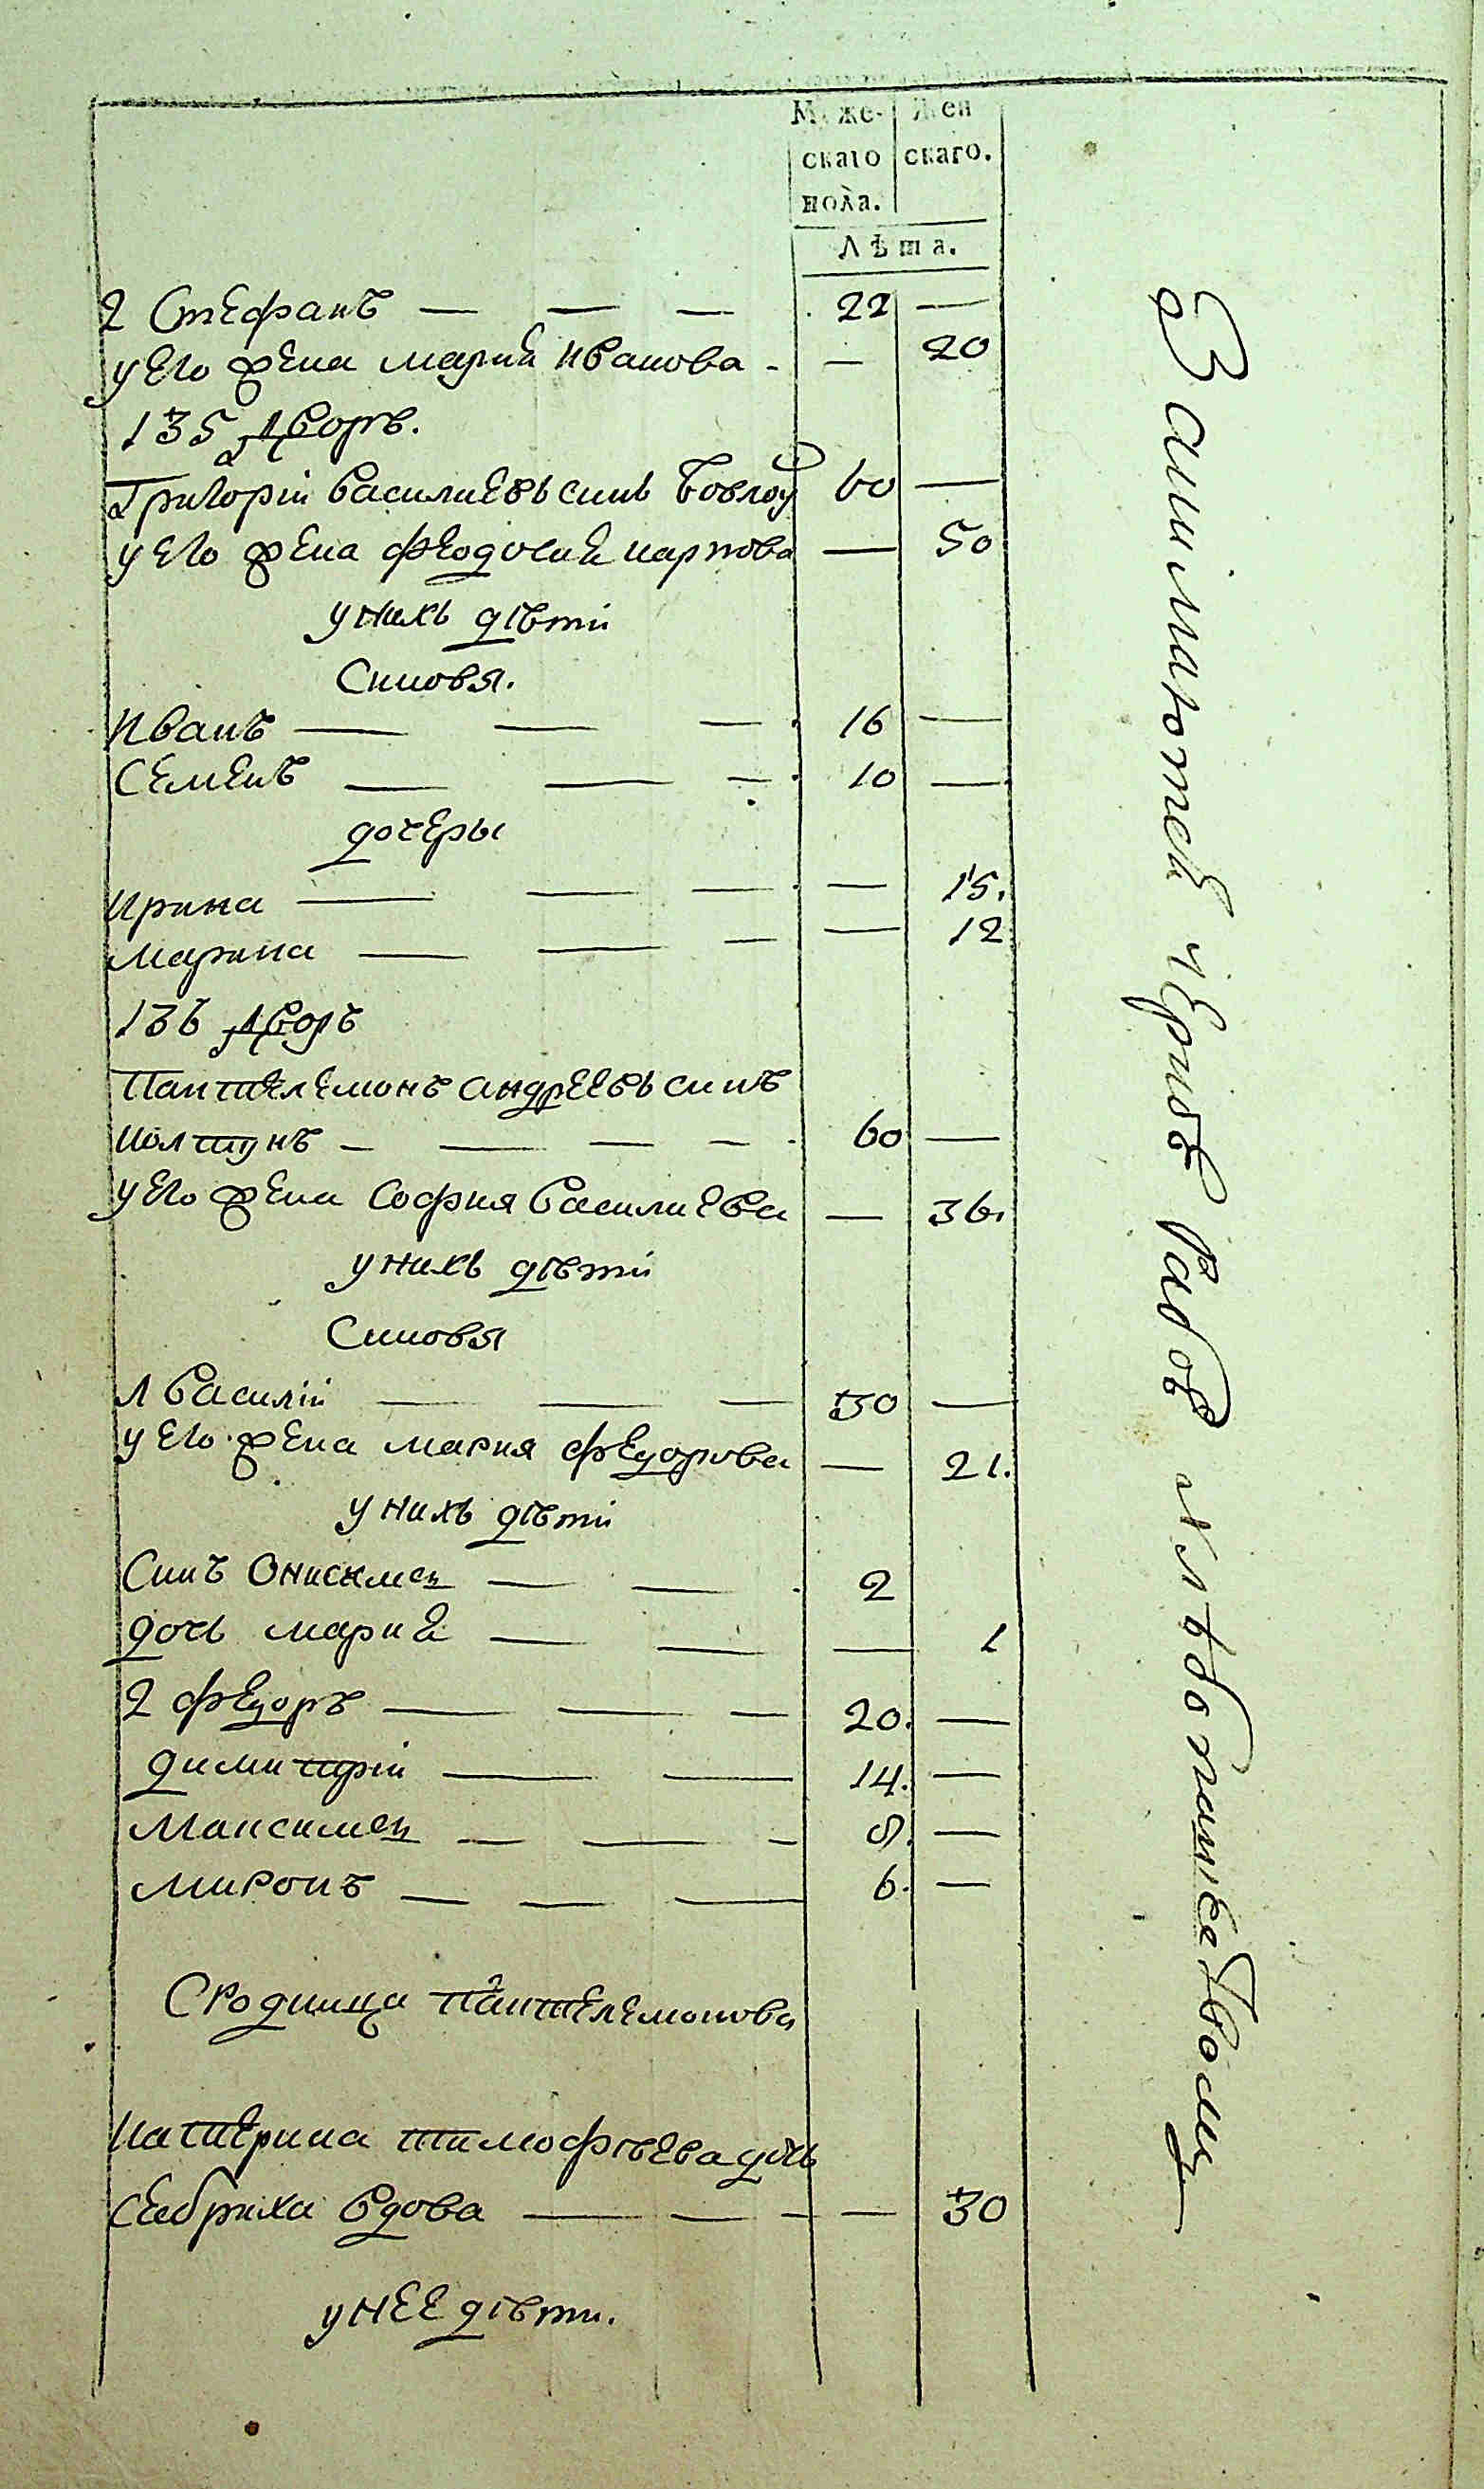 Муже- Жен
скаго скаго.
пола.
Лѣта.
2 Стефанъ — — — 22 —
у его жена Мария Иванова - — 20
135 Дворъ.
Григорій Василиевъ синъ 60 —
у его жена Феодосия Карпова — 50
у нихъ дѣти
Синовя.
Иванъ — — — 16 —
Семенъ — — — 10 —
дочеры
Ирина — — — — 15.
Марина — — — — 12
136 Дворъ
Пантелемонъ Андреевъ синъ
Колтунъ — — — - 60 —
у его жена София Василиева — 36.
у нихъ дѣти
Синовя
1 Василій — — — 30 —
у его жена Мария Федорова — 21.
у нихъ дѣти
Синъ Онисимен — — 2
дочь Мария — — — 1
2 Федоръ — — — 20. —
Димитрій — — 14. —
Максимен — — - 8. —
Миронъ — — — 6. —
Сродница Пантелемонова
Катерина Тимофѣева дочь
вдова — — - — 30
у нее дѣти.
Занимаютсе у Ерновъ работ хлѣбопашеством